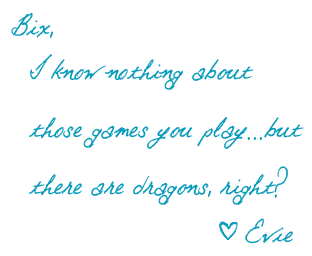 Bix,
I know nothing about
those games you play...but
there are dragons, right?
♡ Evie